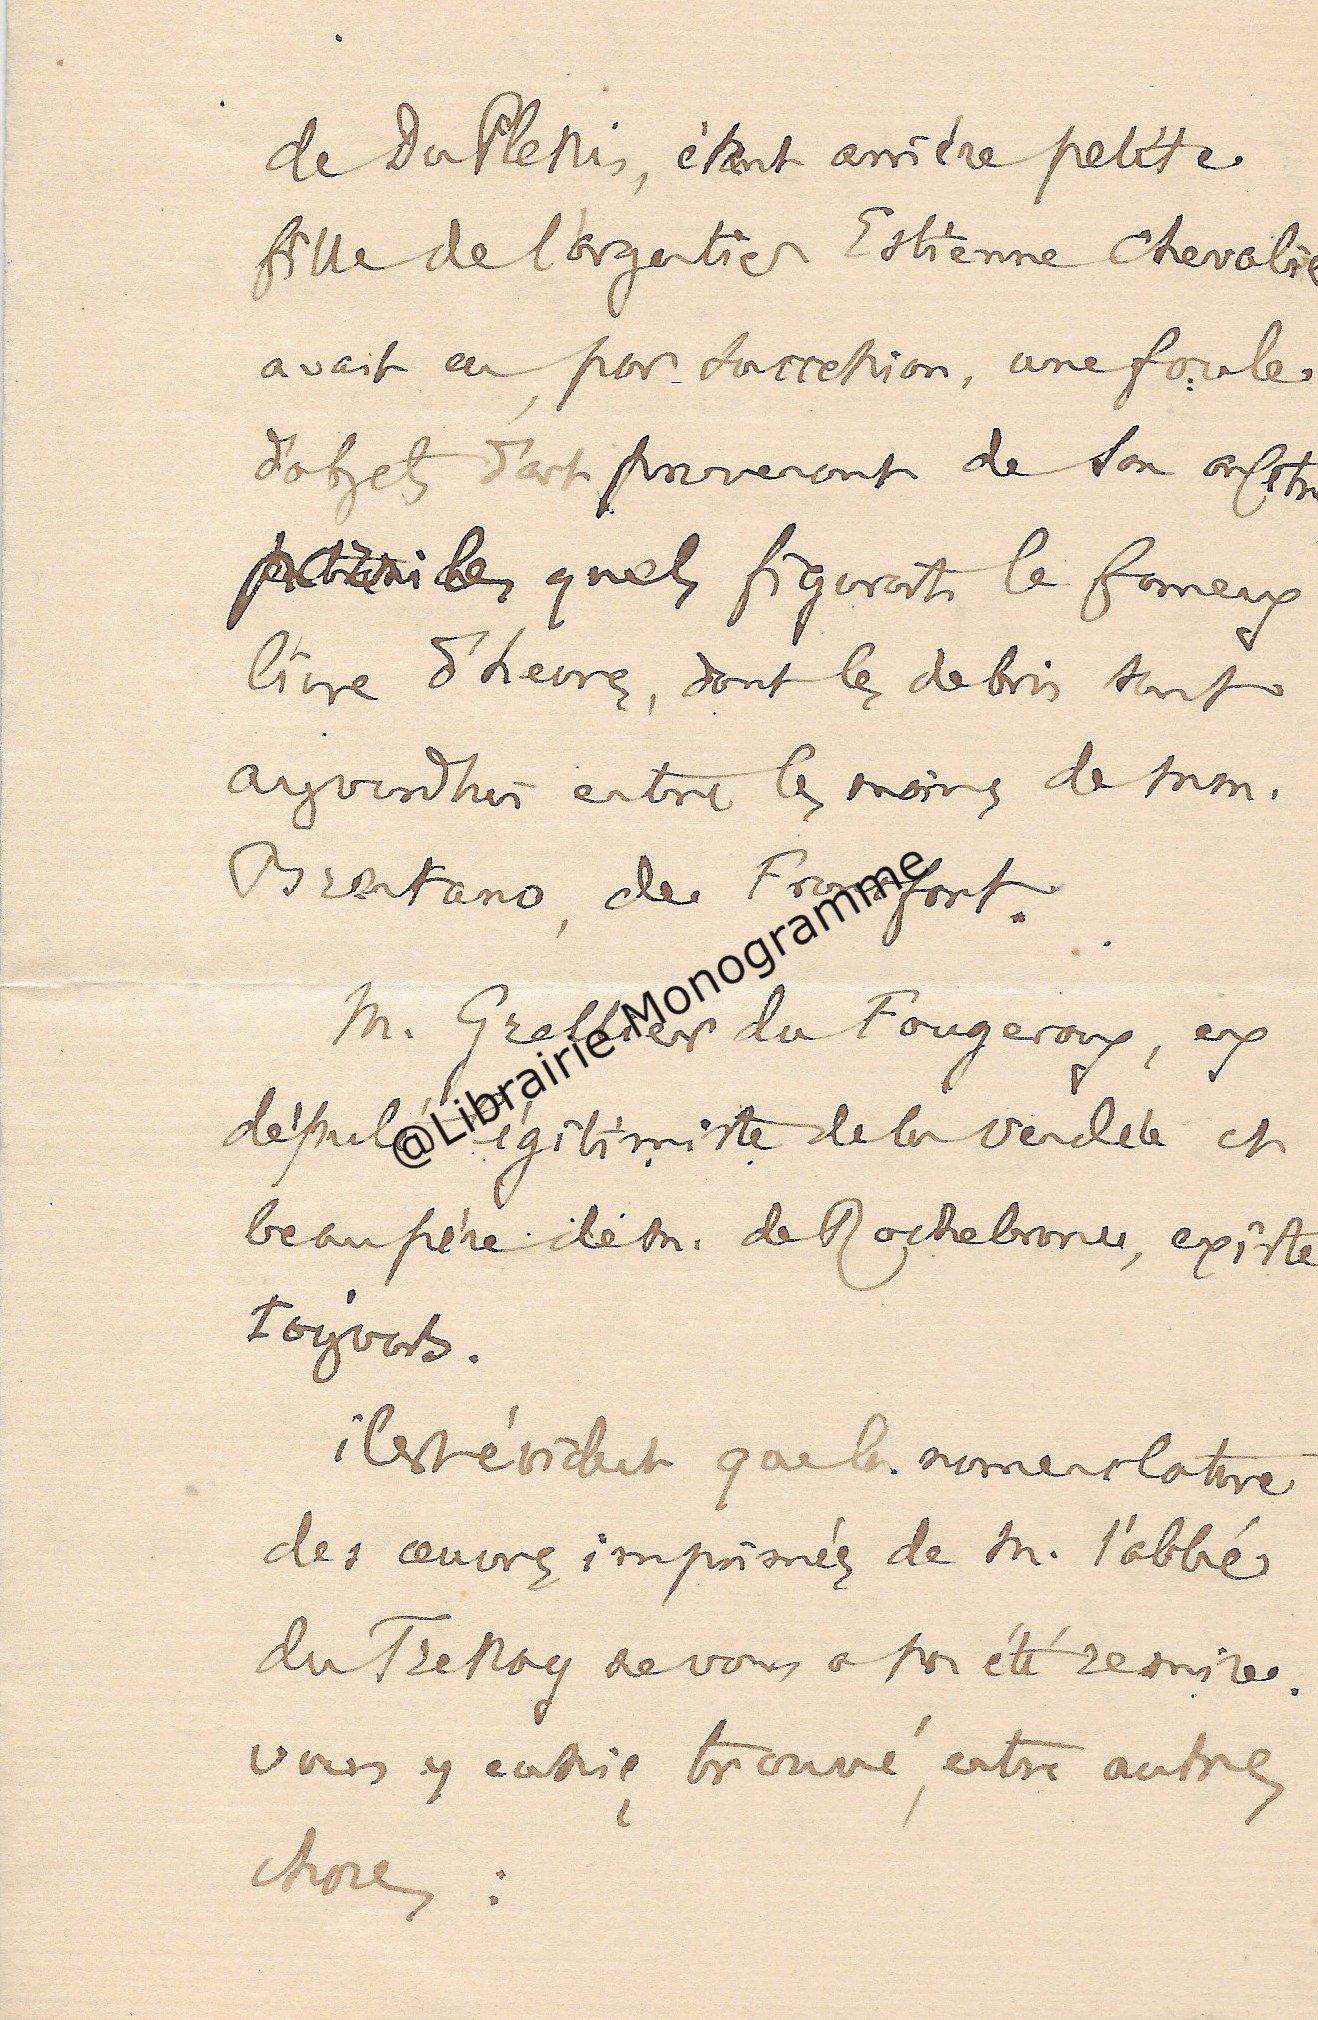 de Du Plessis, étant arrière petite
fille de l'argentier Estienne Chevalie
avait eu, par succession, une foule
d'objets d'art provenant de son ancêtre
parmi lesquels figurait le fameux
livre d'heures, dont les debris sont
aujourd'hui entre les mains de mm.
Brentano, de Francfort.
M. Grellier du Fougeroux, ex
député légitimiste de la Vendée et
beau père de M. de Rochebrune, existe
toujours.
il est évident que la nomenclature
des œuvres imprimées de M. l'abbé
du Tressay ne vous a pas été remise.
vous y eussiez trouvé, entre autres
choses :
@Librairie Monogramme